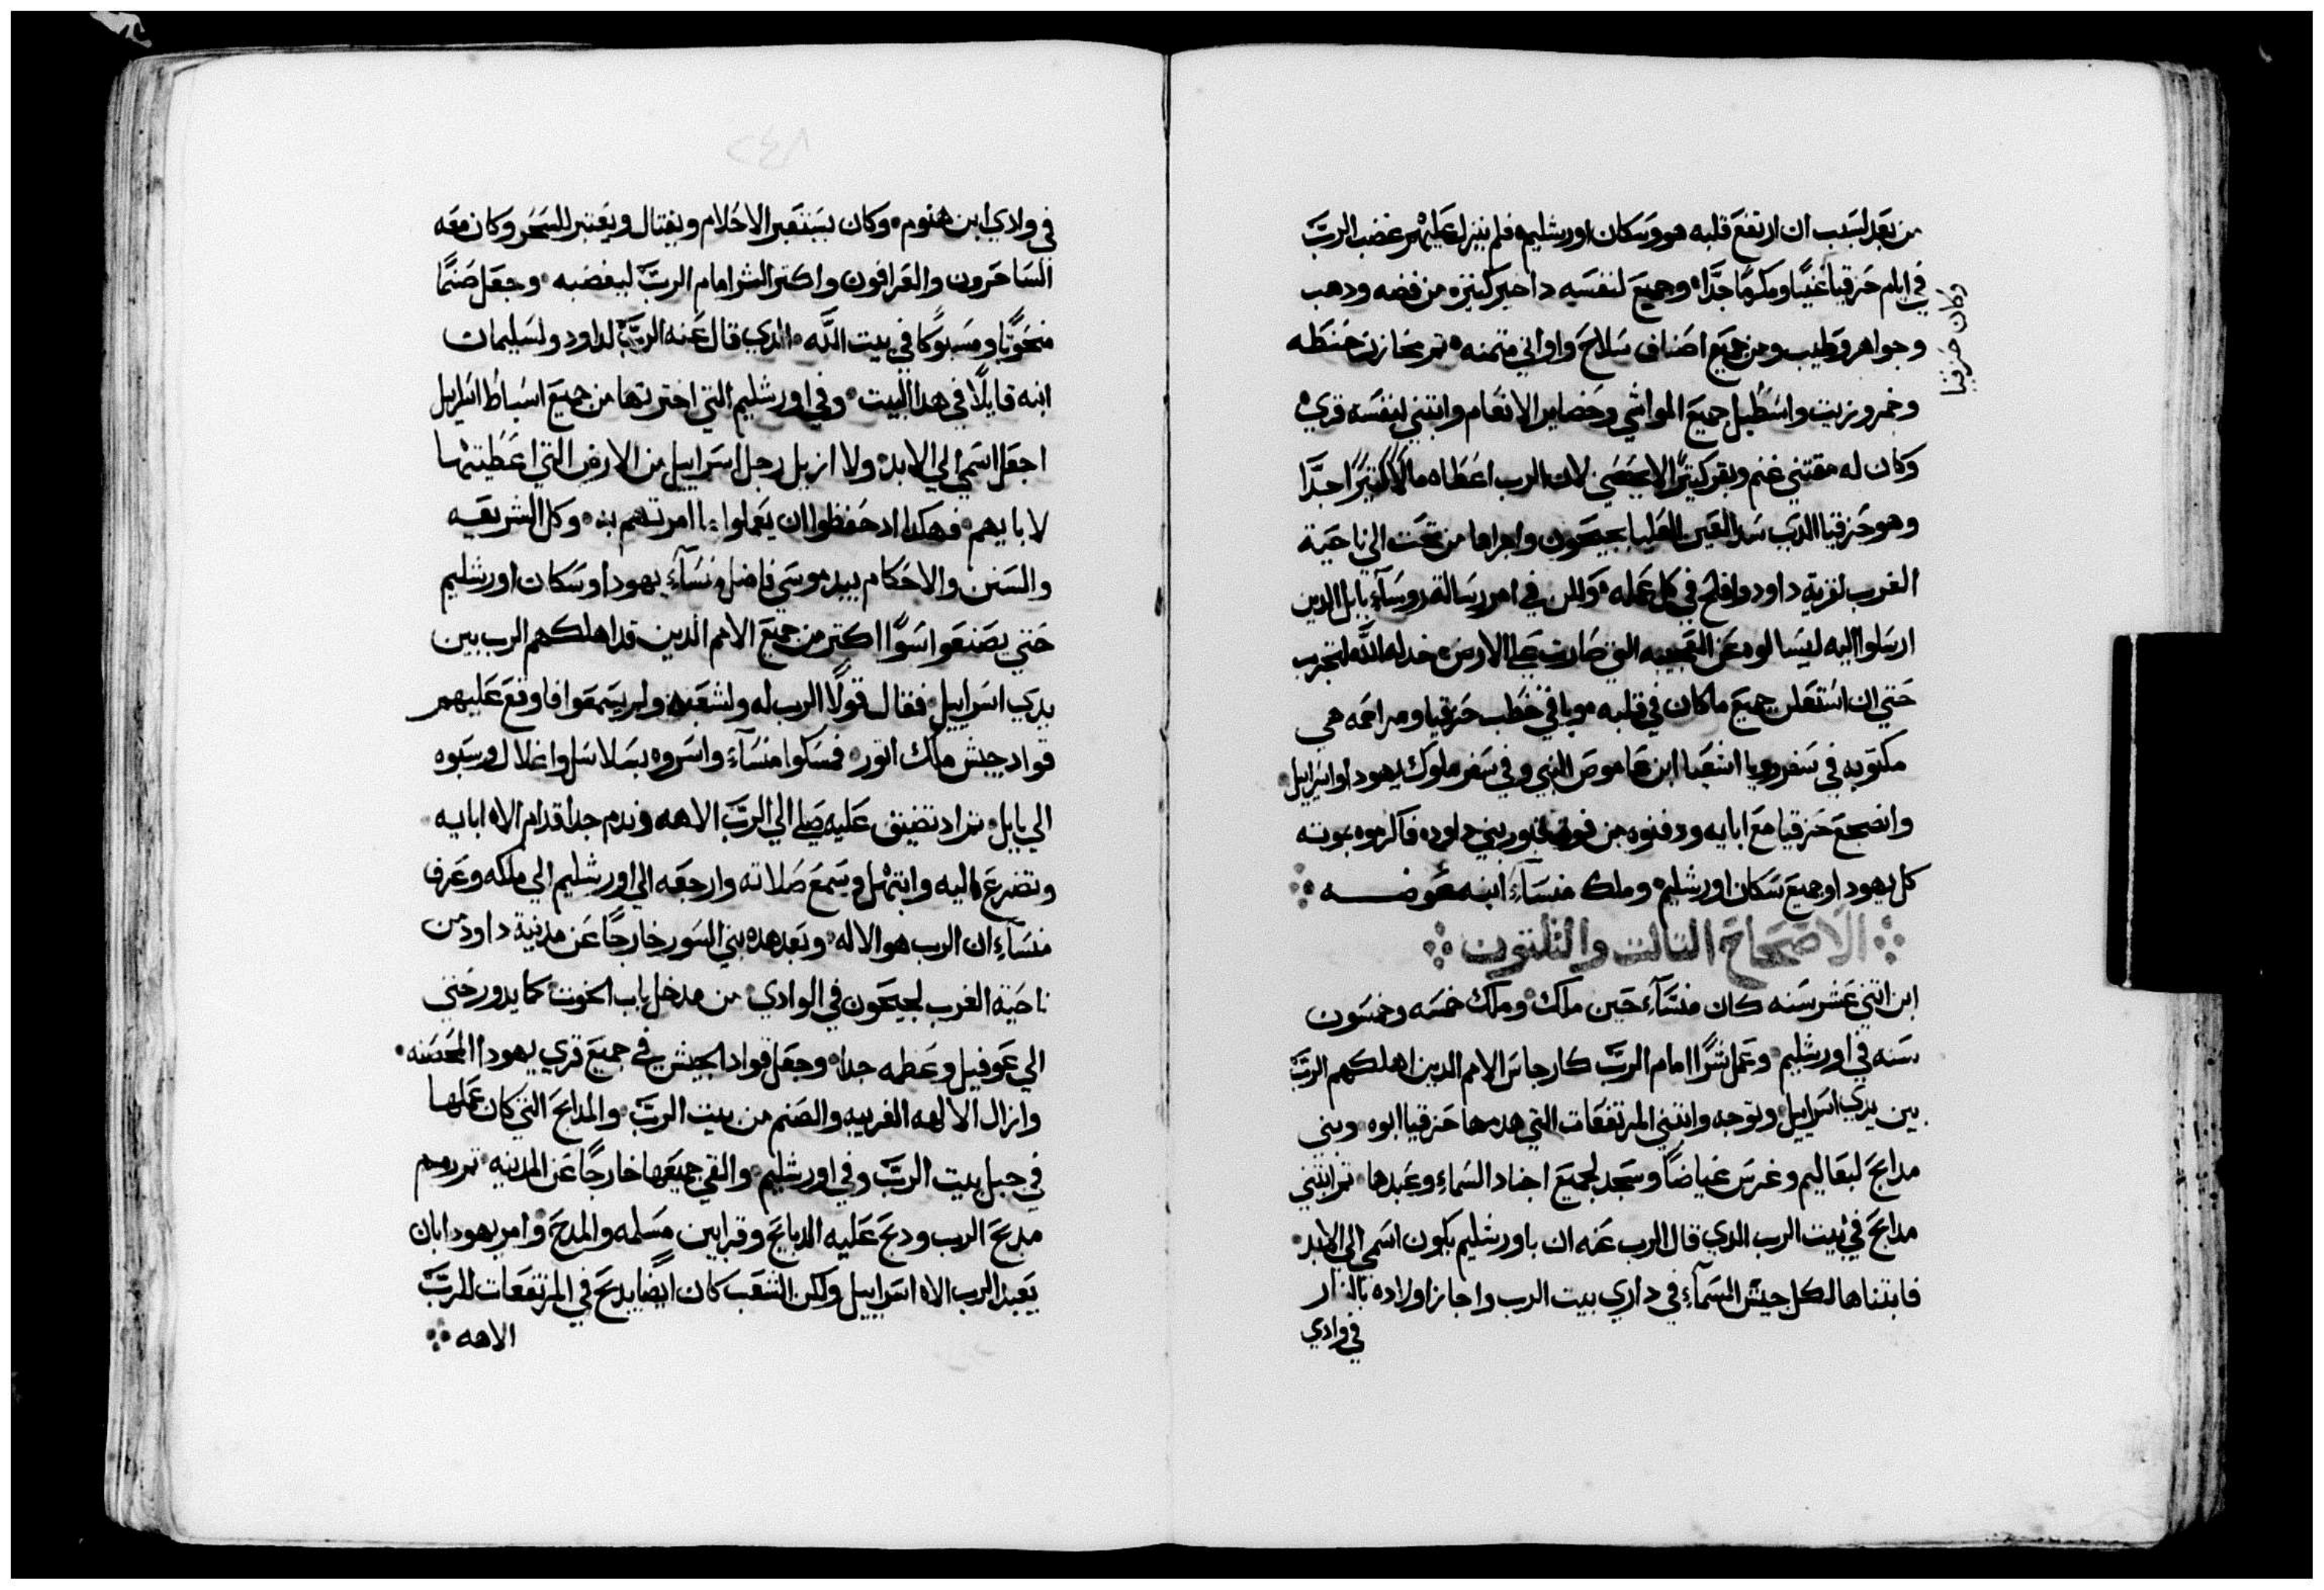 من بعد لسبب ان ارتفع قلبه هو وسكان اورشليم فلم ينزل عليهم غضب الرب
في ايام حزقيا غنيًا ومكرمًا جدًا وجميع لنفسه دخاير كثيره من فضه ودهب
وكان حزقيا
وجواهر وطيب ومن جميع اصناف سلاح واواني متمنه تم مخازن حنطه
وخمر وزيت واسطبل جميع المواشي وحضاير الانعام وابتني لنفسه قري
وكان له مقتني غنم وبقر كتيرًا لا يحصي لان الرب اعطاه مالًا كتيرًا جدًا
وهو حزقيا الدي سد العين العليا بجيحون واجراها من تحت الي ناحية
الغرب لقرية داود وافلح في كل عمله ولكن في امر رسالة روسآء بابل الدين
ارسلوا اليه ليسالوه عن العجيبه التي صارت علي الارض خدله الله لتجرب
حتي ان استعلن جميع ما كان في قلبه وباقي خطب حزقيا ومراحمه هي
مكتوبه في سفر رويا اشعيا ابن هاموص النبي وفي سفر ملوك يهودا واسراييل
وانضجع حزقيا مع ابايه ودفنوه من فوق قبور بني داود فاكرموه بموته
كل يهودا وجميع سكان اورشليم وملك منسآء ابنه عوضه
الاصحاح التالت والتلتون
ابن اتني عشر سنه كان منسآء حين ملك وملك خمسه وخمسون
سنه في اورشليم وعمل شرًا امام الرب كارجاس الامم الدين اهلكهم الرب
بين يدي اسراييل وتوجه وابتني المرتفعات التي هدمها حزقيا ابوه وبني
مدابح لبعاليم وغرس غياضًا وسجد لجميع اجناد السمآء وعبدها تم ابتني
مدابح في بيت الرب الدي قال الرب عنه ان باورشليم يكون اسمي الي الابد
فابتناها لكل جيش السمآء في داري بيت الرب واجاز اولاده بالنار
في وادي
٢٤٨
في وادي ابن هنوم وكان يستعبر الاحلام ويفتال ويعتبر للسحر وكان معه
الساحرون والعرافون واكتر الشر امام الرب ليغضبه وجعل صنمًا
منحوتًا ومسبوكًا في بيت الله الدي قال عنه الرب لداود ولسليمان
ابنه قايلًا في هدا البيت وفي اورشليم التي اخترتها من جميع اسباط اسراييل
اجعل اسمي الي الابد ولا ازيل رجل اسراييل من الارض التي اعطيتها
لابايهم فهكدا اد حفظوا ان يعملوا ما امرتهم به وكل الشريعه
والسنن والاحكام بيد موسي فاضل منسآء يهودا وسكان اورشليم
حتي يصنعوا سوًا اكتر من جميع الامم الدين قد اهلكهم الرب بين
يدي اسراييل فقال قولًا الرب له ولشعبه ولم يسمعوا فاوقع عليهم
قواد جيش ملك اتور فمسكوا منسآء واسروه بسلاسل واغلال وسبوه
الي بابل تم اد تضيق عليه صلي الي الرب الاهه وندم جدًا قدام الاه ابايه
وتضرع اليه وابتهل وسمع صلاته وارجعه الي اورشليم الي ملكه وعرف
منسآء ان الرب هو الاله وبعد هده بني السور خارجًا عن مدنية داود من
ناحية الغرب لجيحون في الوادي من مدخل باب الحوت كما يدور حتي
الي عوفيل وعظمه جدًا وجعل قواد الجيش في جميع قري يهودا المحصنه
وازال الالهه الغريبه والصنم من بيت الرب والمدابح التي كان عملها
في جبل بيت الرب وفي اورشليم والقي جميعها خارجًا عن المدينه تم رمم
مدبح الرب ودبح عليه الدبايح وقرابين مسلمه والمدح وامر يهودا بان
يعبد الرب الاه اسراييل ولكن الشعب كان ايضًا يدبح في المرتفعات للرب
الاهه